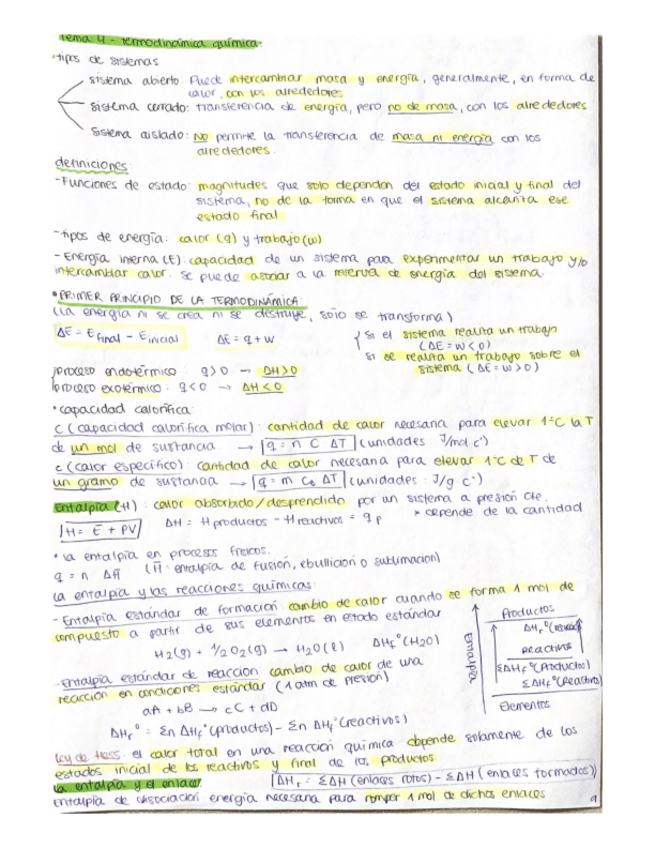 Tema 4 - Termodinámica química.
• tipos de sistemas
sistema abierto: Puede intercambiar masa y energía, generalmente, en forma de
calor, con los alrededores
sistema cerrado: transferencia de energía, pero no de masa, con los alrededores
sistema aislado: No permite la transferencia de masa ni energía con los
alrededores.
definiciones:
- Funciones de estado: magnitudes que solo dependen del estado inicial y final del
sistema, no de la forma en que el sistema alcanza ese
estado final
- tipos de energía: calor (q) y trabajo (w)
- Energía interna (E): capacidad de un sistema para experimentar un trabajo y/o
intercambiar calor. Se puede asociar a la reserva de energía del sistema.
• PRIMER PRINCIPIO DE LA TERMODINÁMICA
(La energía ni se crea ni se destruye, solo se transforma)
ΔE = E final - E inicial ΔE = q + w { Si el sistema realiza un trabajo
(ΔE = w < 0)
Si se realiza un trabajo sobre el
sistema (ΔE = w > 0)
proceso endotérmico: q > 0 → ΔH > 0
proceso exotérmico: q < 0 → ΔH < 0
• capacidad calorífica:
C (capacidad calorífica molar): cantidad de calor necesaria para elevar 1°C la T
de un mol de sustancia → q = n C ΔT (unidades J/mol c°)
c (calor específico): cantidad de calor necesaria para elevar 1°C de T de
un gramo de sustancia → q = m ce ΔT (unidades: J/g c°)
Entalpía (H): calor absorbido/desprendido por un sistema a presión cte.
H = E + PV ΔH = H productos - H reactivos = qp * depende de la cantidad
• la entalpía en procesos físicos.
q = n ΔH̄ (H̄: entalpía de fusión, ebullición o sublimación)
La entalpía y las reacciones químicas:
- Entalpía estándar de formación: cambio de calor cuando se forma 1 mol de
compuesto a partir de sus elementos en estado estándar
H2(g) + 1/2 O2(g) → H2O(l) ΔHf°(H2O)
- Entalpía estándar de reacción: cambio de calor de una
reacción en condiciones estándar (1 atm de presión)
aA + bB → cC + dD
ΔHr° = Σn ΔHf°(productos) - Σn ΔHf°(reactivos)
Entalpía
Productos
ΔHr°
Reactivos
ΣΔHf°(Productos)
ΣΔHf°(Reactivo)
Elementos
Ley de Hess: el calor total en una reacción química depende solamente de los
estados inicial de los reactivos y final de los productos
La entalpía y el enlace: ΔHr = ΣΔH(enlaces rotos) - ΣΔH(enlaces formados)
Entalpía de disociación energía necesaria para romper 1 mol de dichos enlaces